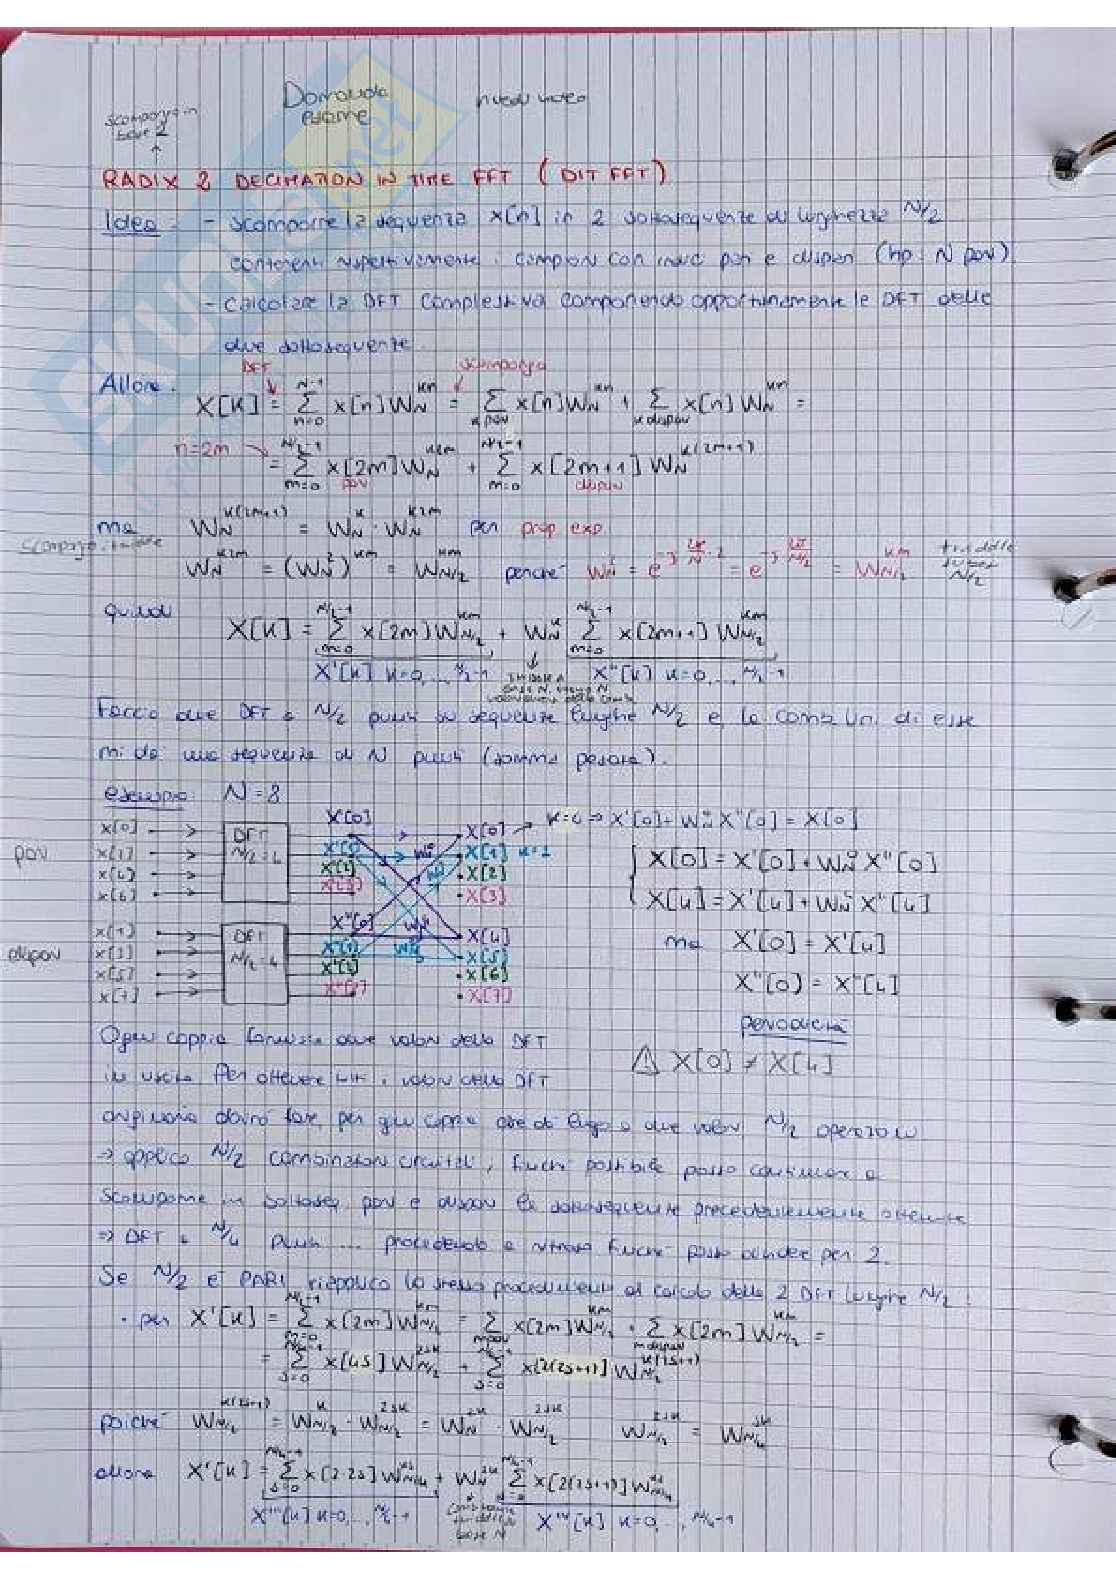 Domanda
esame
rivedi video
scomporre in
base 2
RADIX 2 DECIMATION IN TIME FFT (DIT FFT)
Idea: - scomporre la sequenza x[n] in 2 sottosequenze di lunghezza N/2
contenenti rispettivamente i campioni con indici pari e dispari (hp: N pari)
- calcolare la DFT complessiva componendo opportunamente le DFT delle
due sottosequenze.
DFT
Allora: X[k] = Σ_{n=0}^{N-1} x[n] W_N^{kn} = Σ x[n] W_N^{kn} + Σ x[n] W_N^{kn} =
n=2m → = Σ_{m=0}^{N/2-1} x[2m] W_N^{k2m} + Σ_{m=0}^{N/2-1} x[2m+1] W_N^{k(2m+1)}
pari dispari
ma W_N^{k(2m+1)} = W_N^k · W_N^{k2m} per prop exp.
W_N^{k2m} = (W_N^2)^{km} = W_{N/2}^{km} perché W_N^2 = e^{-j 2π/N · 2} = e^{-j 2π/(N/2)} = W_{N/2}^{km}
quindi X[k] = Σ_{m=0}^{N/2-1} x[2m] W_{N/2}^{km} + W_N^k Σ_{m=0}^{N/2-1} x[2m+1] W_{N/2}^{km}
X'[k] k=0,...,N/2-1 X''[k] k=0,...,N/2-1
Faccio due DFT a N/2 punti su sequenze lunghe N/2 e la comb. lin. di esse
mi dà una sequenza di N punti (somma pesata).
esempio: N=8
X[0]
x[0] DFT X[0] → k=0 ⇒ X'[0] + W_N^0 X''[0] = X[0]
pari N/2=4 X[1] k=1
x[4] X[2]
x[6] X[3]
X[0] = X'[0] + W_N^0 X''[0]
X[4] = X'[4] + W_N^4 X''[4]
x[1] DFT X''[0] X[4]
dispari x[3] N/2=4 X[5]
x[5] X[6]
x[7] X[7]
ma X'[0] = X'[4]
X''[0] = X''[4]
periodicità
⚠ X[0] ≠ X[4]
Ogni coppia fornisce due valori della DFT
in uscita. Per ottenere tutti i valori della DFT
originaria dovrò fare, per ogni coppia che dà luogo a due valori N/2 operazioni
⇒ applico N/2 combinazioni circuitali; finché possibile posso continuare a
scomporre in sottoseq. pari e dispari le sottosequenze precedentemente ottenute
⇒ DFT a N/4 punti ... procedendo a ritroso finché posso dividere per 2.
Se N/2 è PARI, riapplico lo stesso procedimento al calcolo delle 2 DFT lunghe N/2:
· per X'[k] = Σ_{m=0}^{N/2-1} x[2m] W_{N/2}^{km} = Σ_{m pari} x[2m] W_{N/2}^{km} + Σ_{m dispari} x[2m] W_{N/2}^{km} =
= Σ_{s=0}^{N/4-1} x[4s] W_{N/2}^{2sk} + Σ_{s=0}^{N/4-1} x[2(2s+1)] W_{N/2}^{k(2s+1)}
poiché W_{N/2}^{k(2s+1)} = W_{N/2}^k · W_{N/2}^{2sk} = W_N^{2k} · W_{N/2}^{2sk} W_{N/2}^{2sk} = W_{N/4}^{sk}
allora X'[k] = Σ_{s=0}^{N/4-1} x[2·2s] W_{N/4}^{ks} + W_N^{2k} Σ_{s=0}^{N/4-1} x[2(2s+1)] W_{N/4}^{ks}
X'''[k] k=0,...,N/4-1 X''''[k] k=0,...,N/4-1